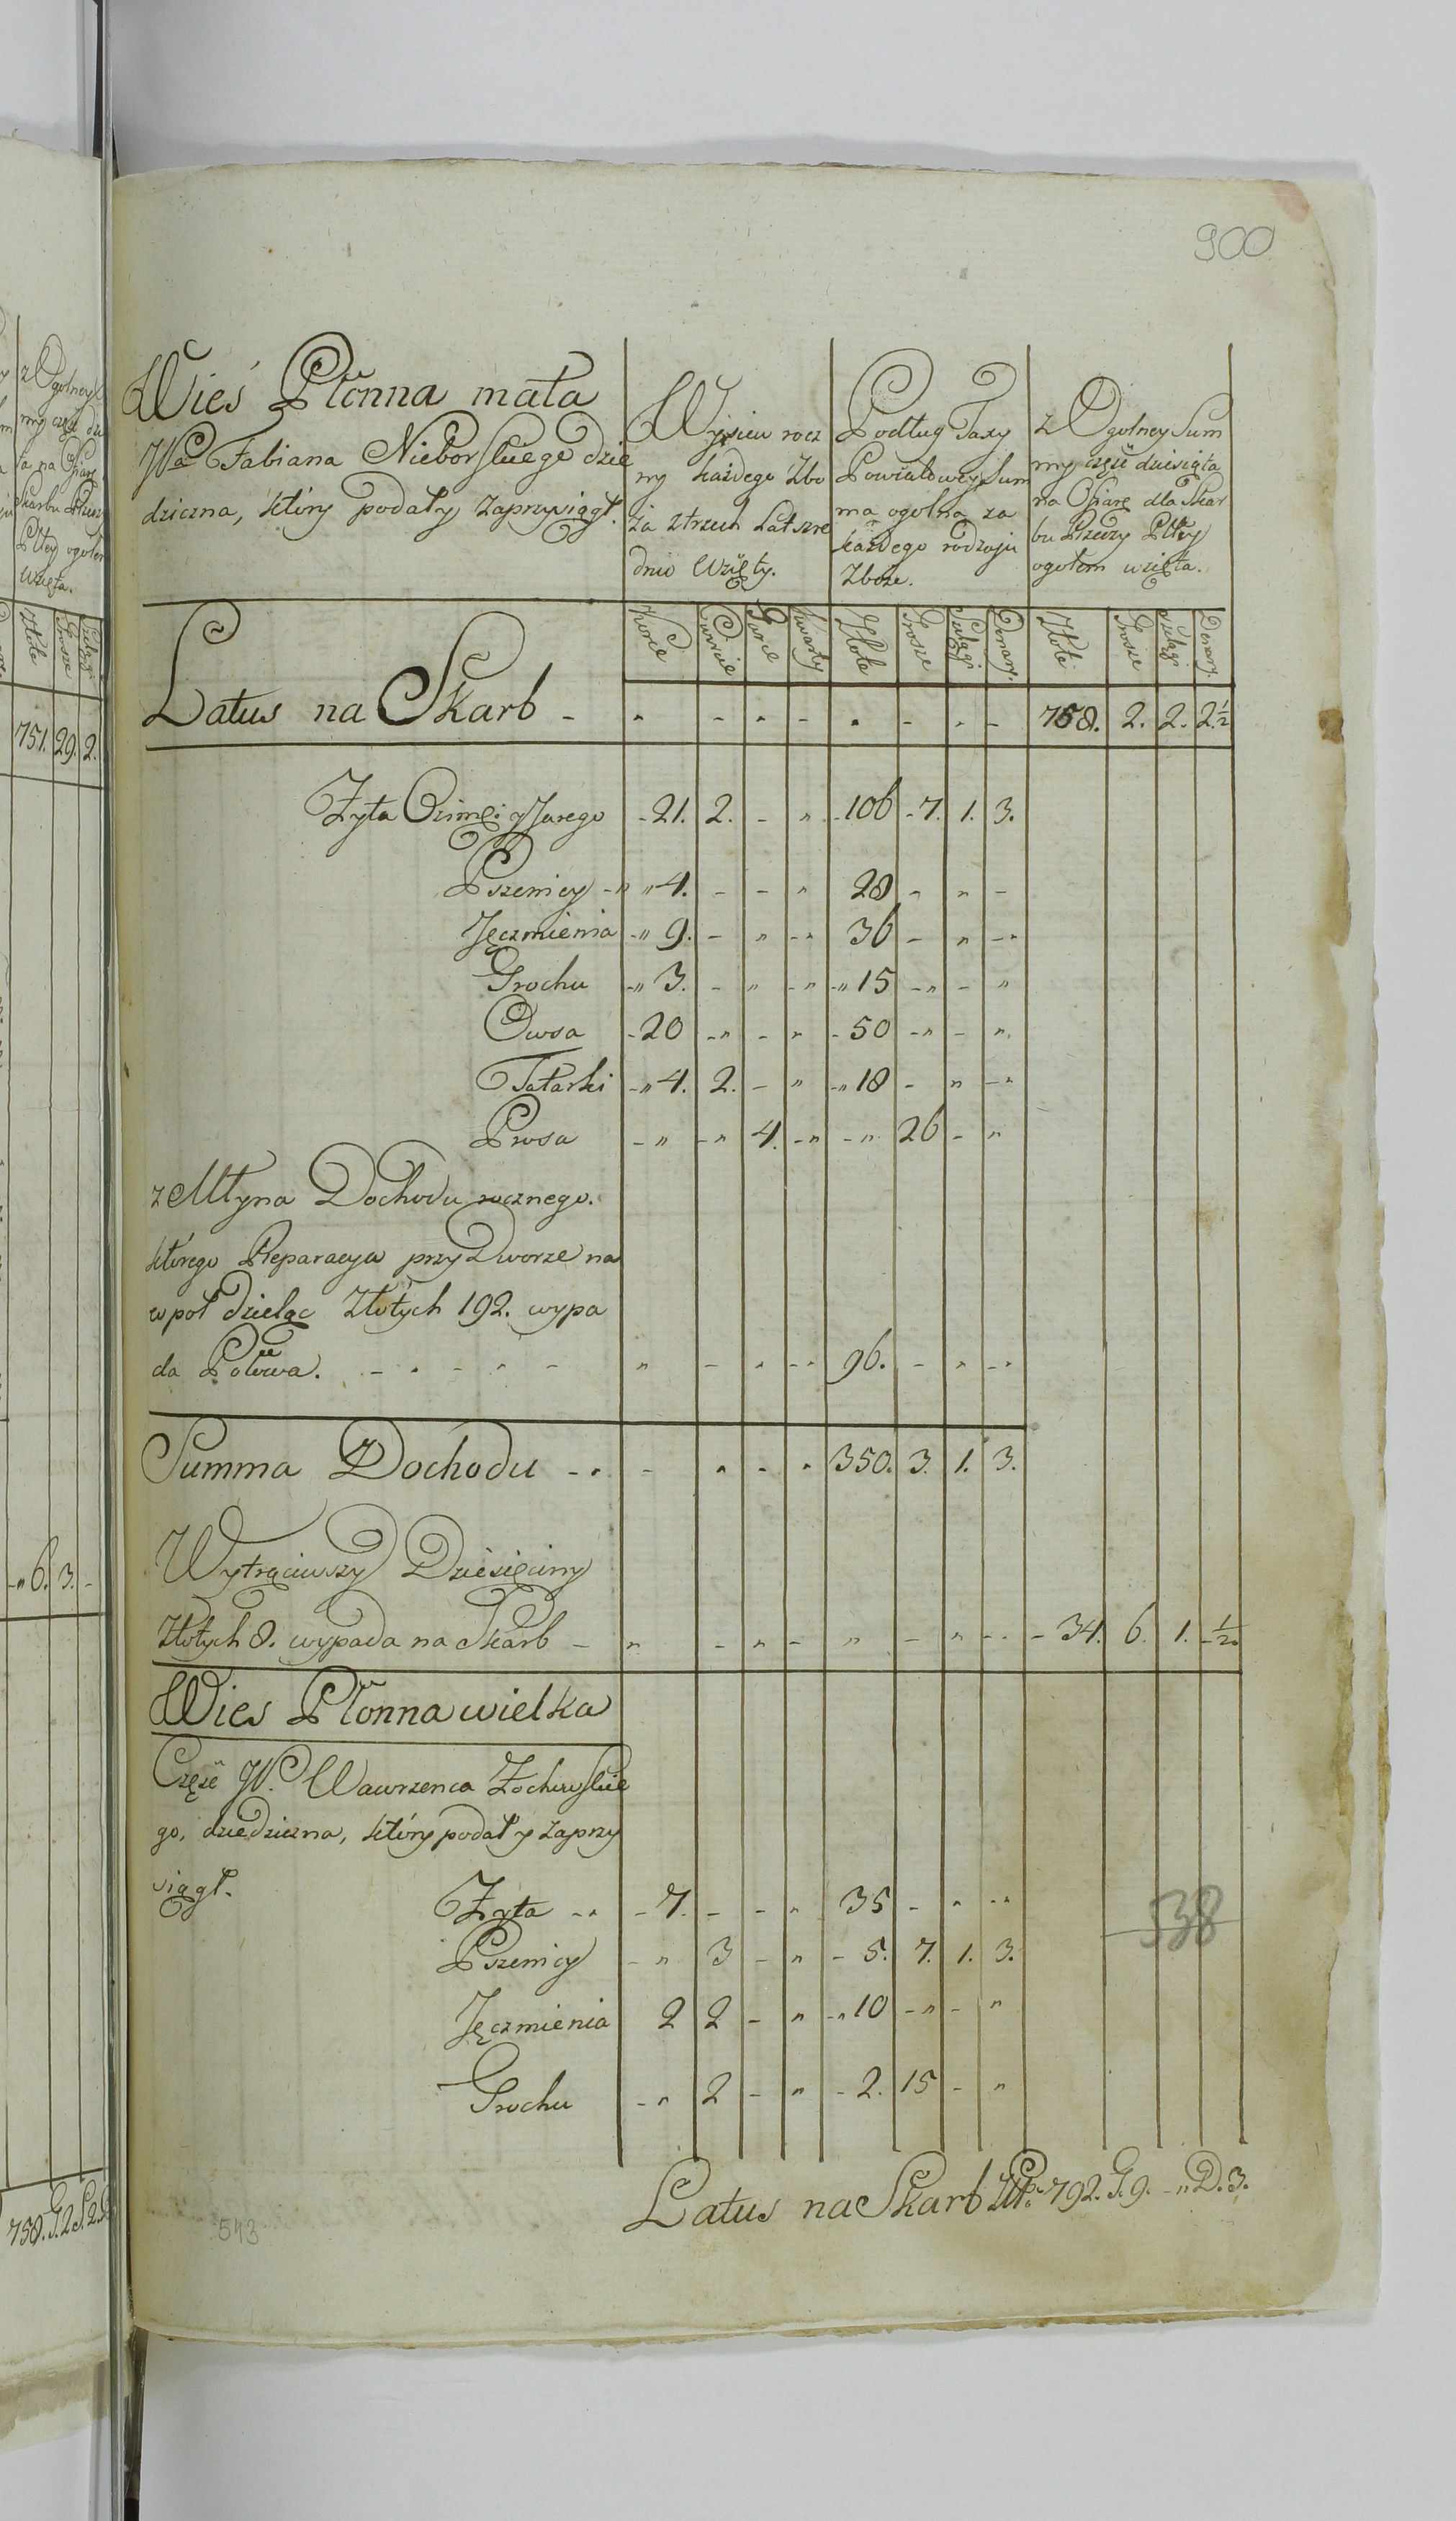 900
Wieś Płonna mała
Fabiana Nieborskiego dzie
dziczna, który podał y zaprzysiągł.
Wysiew rocz
ny każdego Zbo
ża z trzech Lat śre
dnio Wzięty.
Podług Taxy
Powiatowey Sum
ma ogolna za
każdego rodzaju
Zboże.
z Ogolney Sum
my część dziesiąta
na Ofiarę dla Skar
bu Rzeczy Pltey
ogołem wzięta.
Korce Cwierci Garce Kwarty Złote Grosze Szelągi Denary. Złote Grosze Szelągi Denary
Latus na Skarb - " - " - " - " - 758. 2. 2. 2½
Żyta Ozime: y Jarego - 21. 2. - " - 106 - 7. 1. 3.
Pszenicy - " " 4. - - " 28 - " -
Jęczmienia - " 9. - " - " 36 - " - "
Grochu - " 3. - " - " - " 15 - " - "
Owsa - 20 - " - " - 50 - " - ".
Tatarki - " 4. 2. - " - " 18 - " - "
Prosa - " - " 4. - " - " 26 - "
z Młyna Dochodu rocznego.
którego Reparacya przy Dworze na
wpoł dzieląc Złotych 192. wypa
da Połowa. - " - " - " - " - " 96. - " - "
Summa Dochodu - " - " - " 350. 3. 1. 3.
Wytrąciwszy Dziesięciny
Złotych 8. wypada na Skarb - " - " - " - " - " - 34. 6. 1. - ½
Wies Płonna wielka
Część W. Wawrzenca Żochowskie
go, dziedziczna, który podał y zaprzy
siągł.
Żyta - " - 7. - - " 35 - " - "
Pszenicy - " 3 - " - 5. 7. 1. 3.
Jęczmienia 2 2 - " - " 10 - " - "
Grochu - " 2 - " - 2. 15 - "
538
Latus na Skarb Złt: 792. G. 9. - " D. 3.
543
z Ogolney
Skarbu Rzeczy
Pltey ogołem
wzięta.
Złote Grosze Szelągi
751. 29. 2.
- " 6. 3. -
758. G. 2. S. 2.